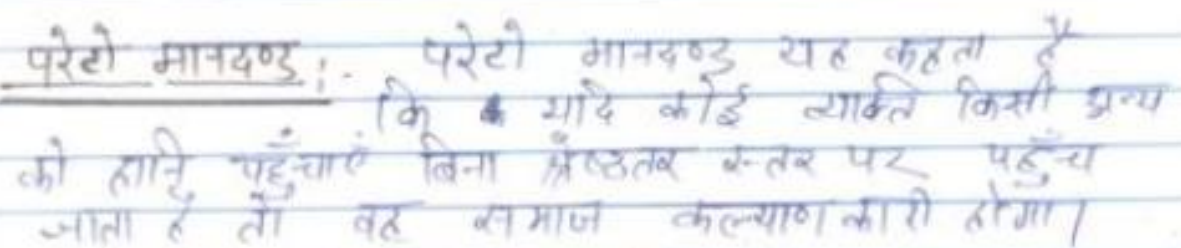 परेटो मानदण्ड :- परेटो मानदण्ड यह कहता है
कि यदि कोई व्यक्ति किसी अन्य
को हानि पहुँचाएं बिना श्रेष्ठतर स्तर पर पहुँच
जाता है तो वह समाज कल्याणकारी होगा।